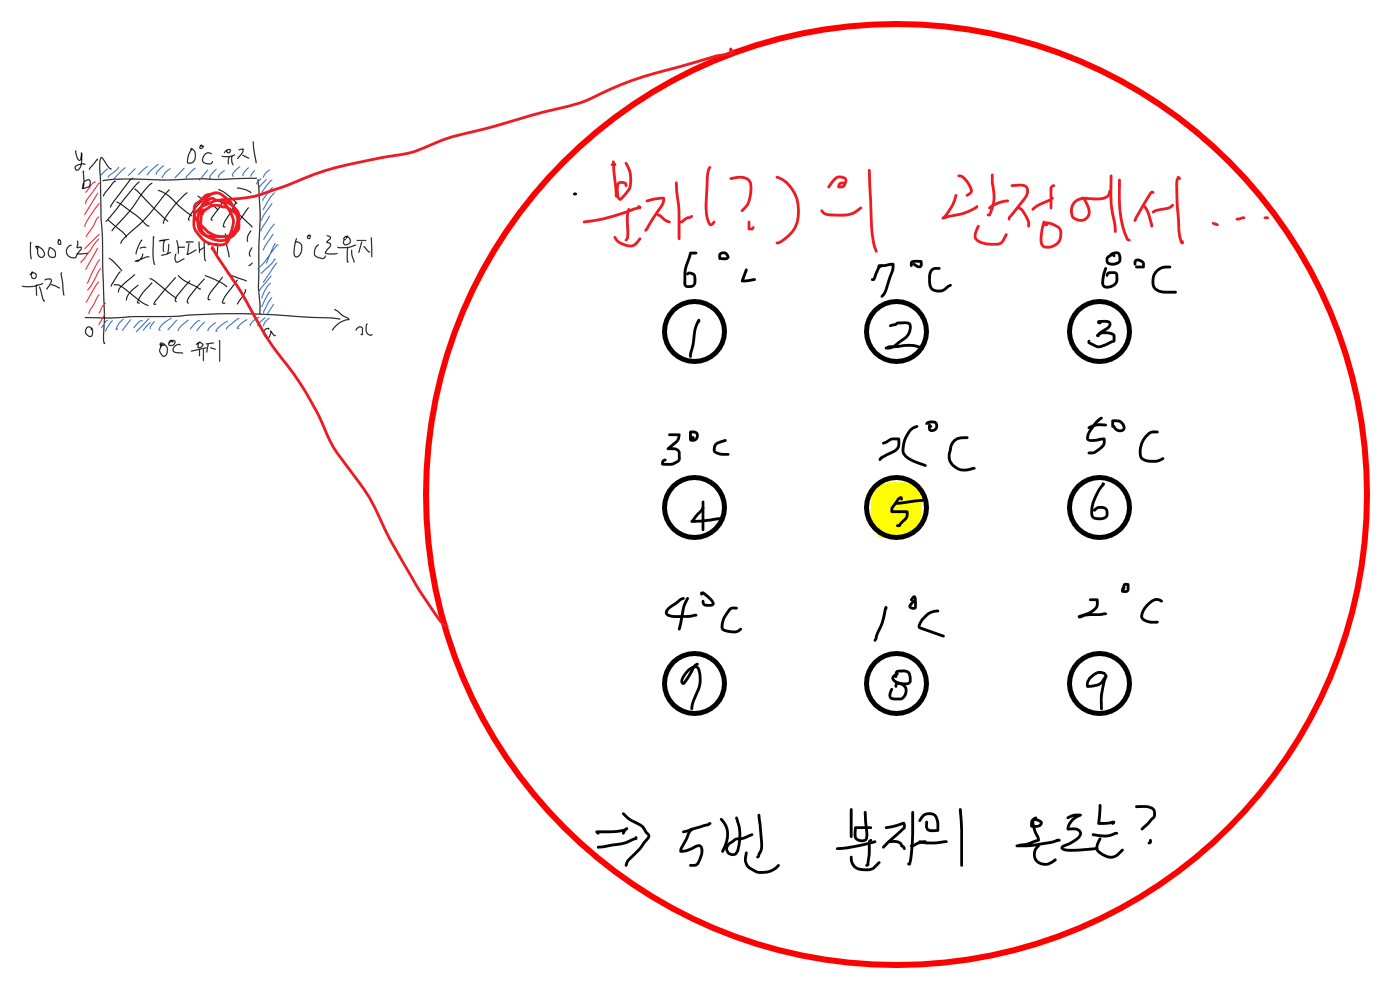 y
b
0°C 유지
100°C로
유지
쇠판대기
0°C로 유지
0
a
x
0°C 유지
분자(?)의 관점에서...
6°C 7°C 8°C
1 2 3
3°C x°C 5°C
4 5 6
4°C 1°C 2°C
7 8 9
⇒ 5번 분자의 온도는?